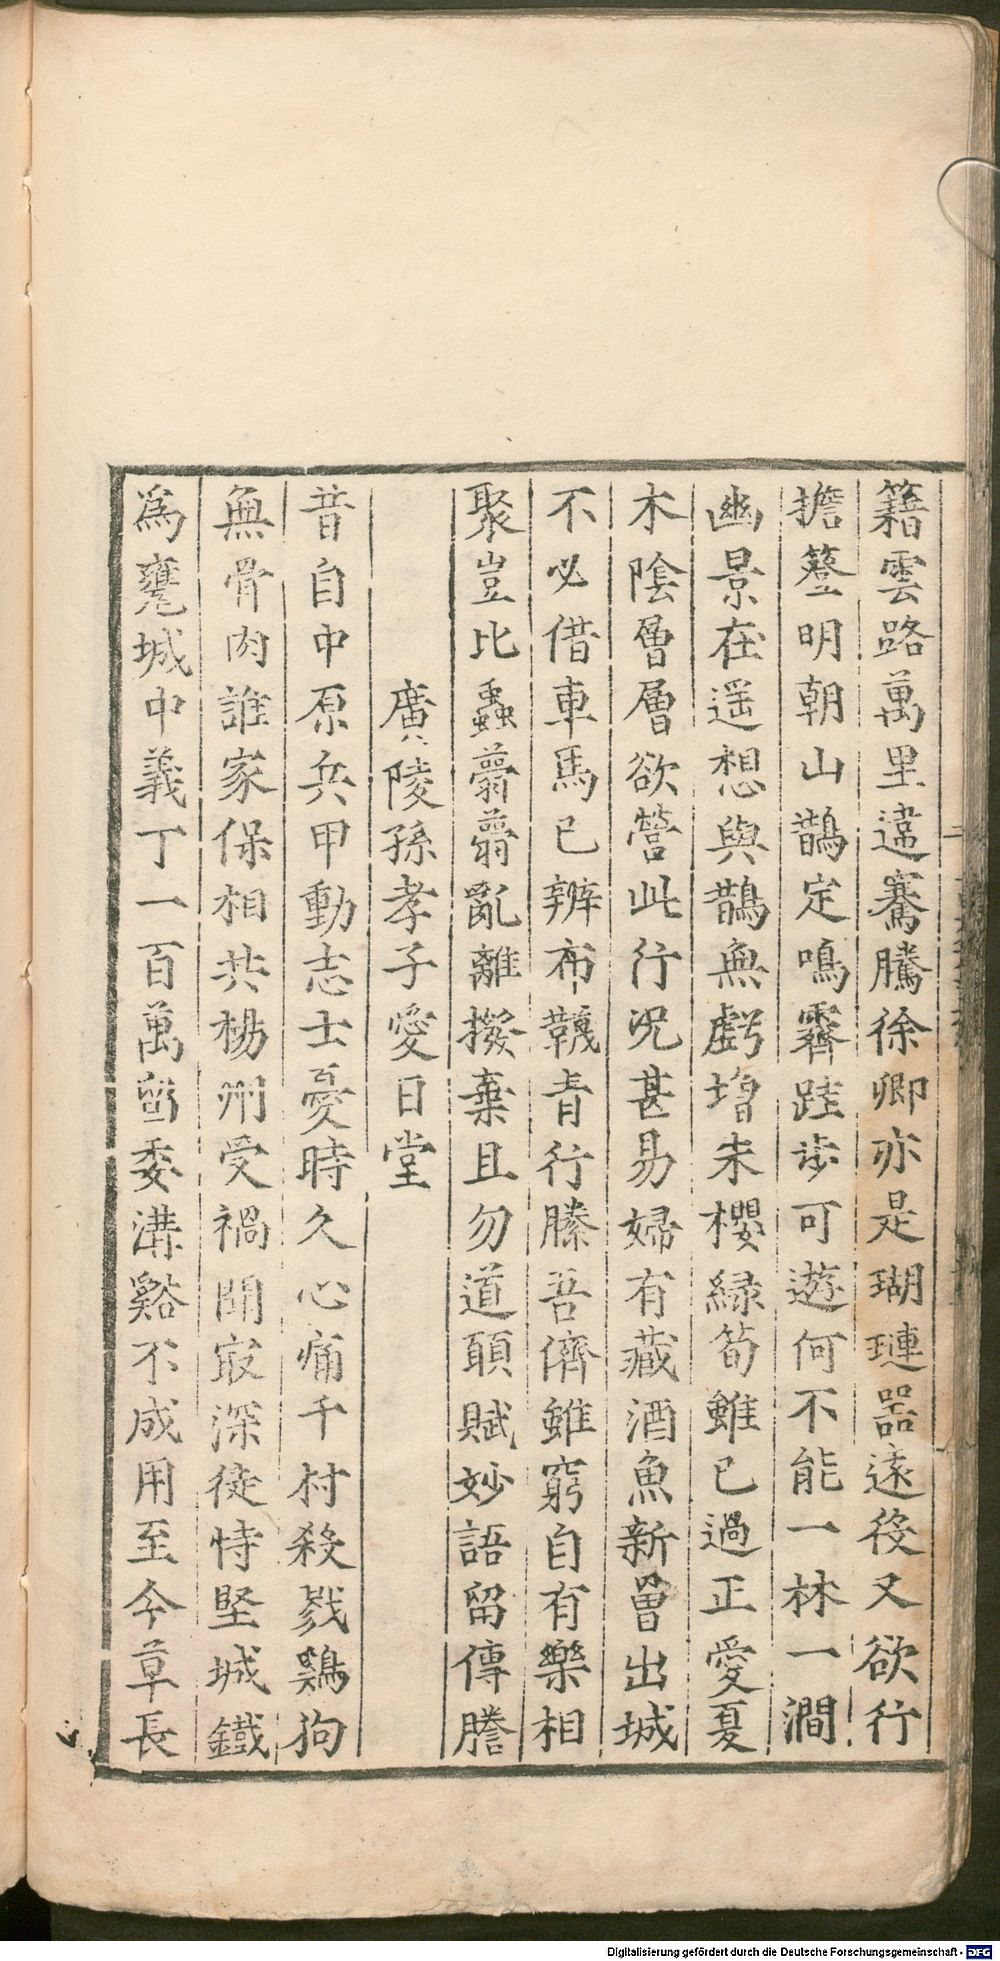 籍雲路萬里違騫騰徐卿亦是瑚璉器遠役又欲行
擔簦明朝山鵲定鳴霽跬步可遊何不能一林一澗
幽景在遥想與鵲無虧增朱櫻緑筍雖已過正愛夏
木陰層層欲營此行況甚易婦有藏酒魚新罾出城
不必借車馬已辦布韈青行縢吾儕雖窮自有樂相
聚豈比蟲薨薨亂離撥棄且勿道頋賦妙語留傳謄
廣陵孫孝子愛日堂
昔自中原兵甲動志士憂時久心痛千村殺戮鷄狗
無骨肉誰家保相共楊州受禍聞㝡深徒恃堅城鐵
為甕城中義丁一百萬委溝谿不成用至今草長
Digitalisierung gefördert durch die Deutsche Forschungsgemeinschaft - DFG